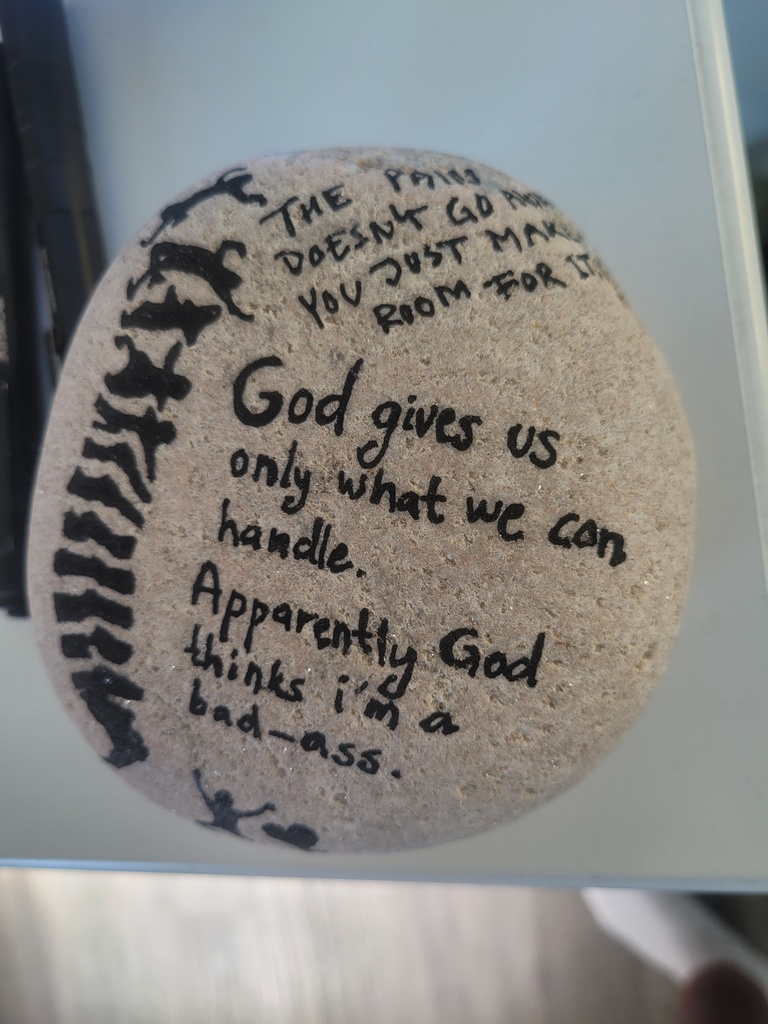 THE PAIN
DOESN'T GO AWAY
YOU JUST MAKE
ROOM FOR IT.
God gives us
only what we can
handle.
Apparently God
thinks i'm a
bad-ass.